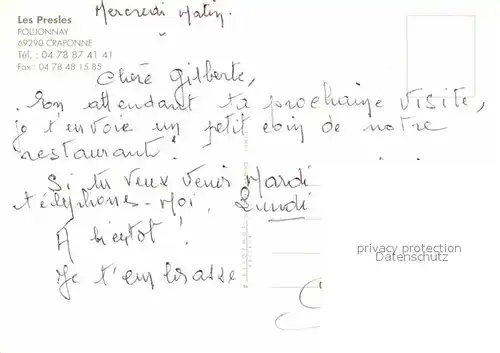 Les Presles
POLLIONNAY
69290 CRAPONNE
Tél. : 04 78 87 41 41
Fax : 04 78 48 15 85
Mercredi Matin.
Chère Gilberte,
En attendant ta prochaine visite,
je t'envoie un petit coin de notre
restaurant !
Si tu veux venir Mardi
téléphones-moi, Lundi
A bientot !
Je t'embrasse
privacy protection
Datenschutz